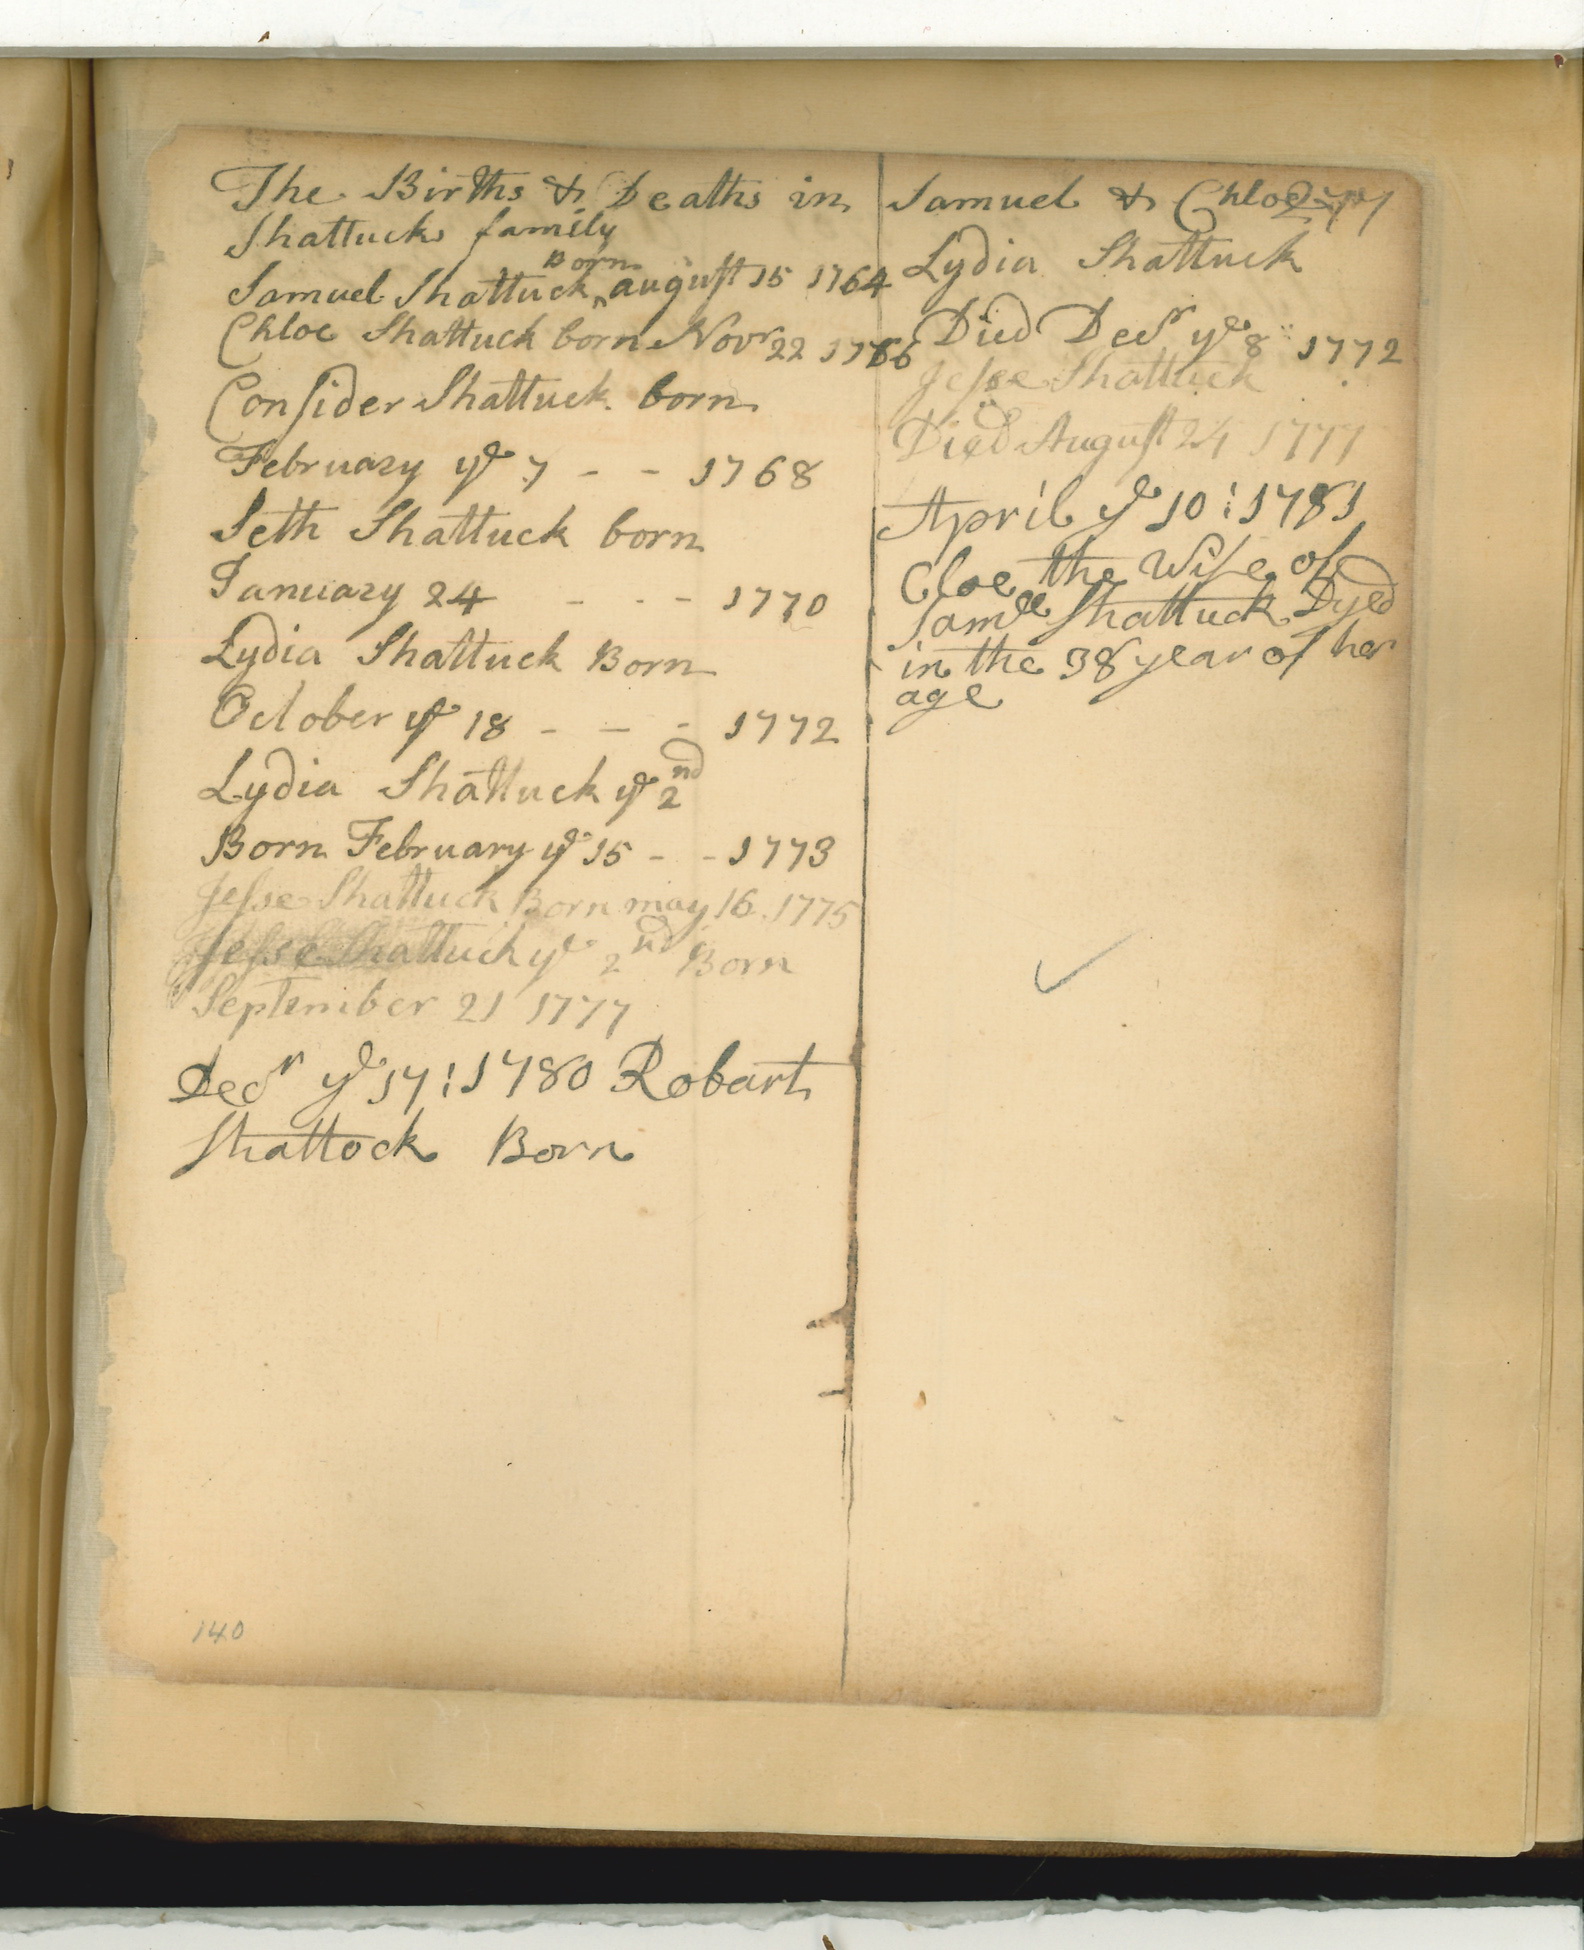 The Births & Deaths in Samuel & Chloe 271
Shattucks family
Samuel Shattuck ^Born august 15 1764
Chloe Shattuck born Novr 22 1766
Consider Shattuck born
February ye 7 - - 1768
Seth Shattuck born
January 24 - - - 1770
Lydia Shattuck Born
October ye 18 - - - 1772
Lydia Shattuck ye 2nd
Born February ye 15 - - 1773
Jesse Shattuck Born may 16 1775
Jesse Shattuck ye 2nd Born
September 21 1777
Decr ye 17:1780 Robart
Shattock Born
140
Lydia Shattuck
Died Decr ye 8 1772
Jesse Shattuck
Died August 24 1777
April ye 10:1781
Cloe the Wife of
Samll Shattuck Dyed
in the 38 year of her
age